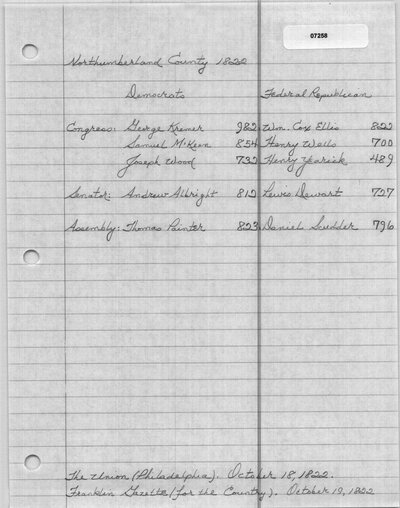 07258
Northumberland County 1822
Democrats Federal Republican
Congress: George Kremer 982 Wm. Cox Ellis 822
Samuel McKean 854 Henry Wells 700
Joseph Wood 732 Henry Yearick 489
Senator: Andrew Albright 812 Lewis Dewart 727
Assembly: Thomas Painter 823 Daniel Scudder 796
The Union (Philadelphia). October 18, 1822.
Franklin Gazette (for the Country). October 19, 1822